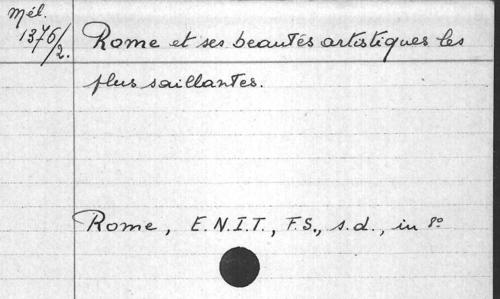 Mél.
1376/2.
Rome et ses beautés artistiques les
plus saillantes.
Rome, E.N.I.T., F.S., s.d., in 8º